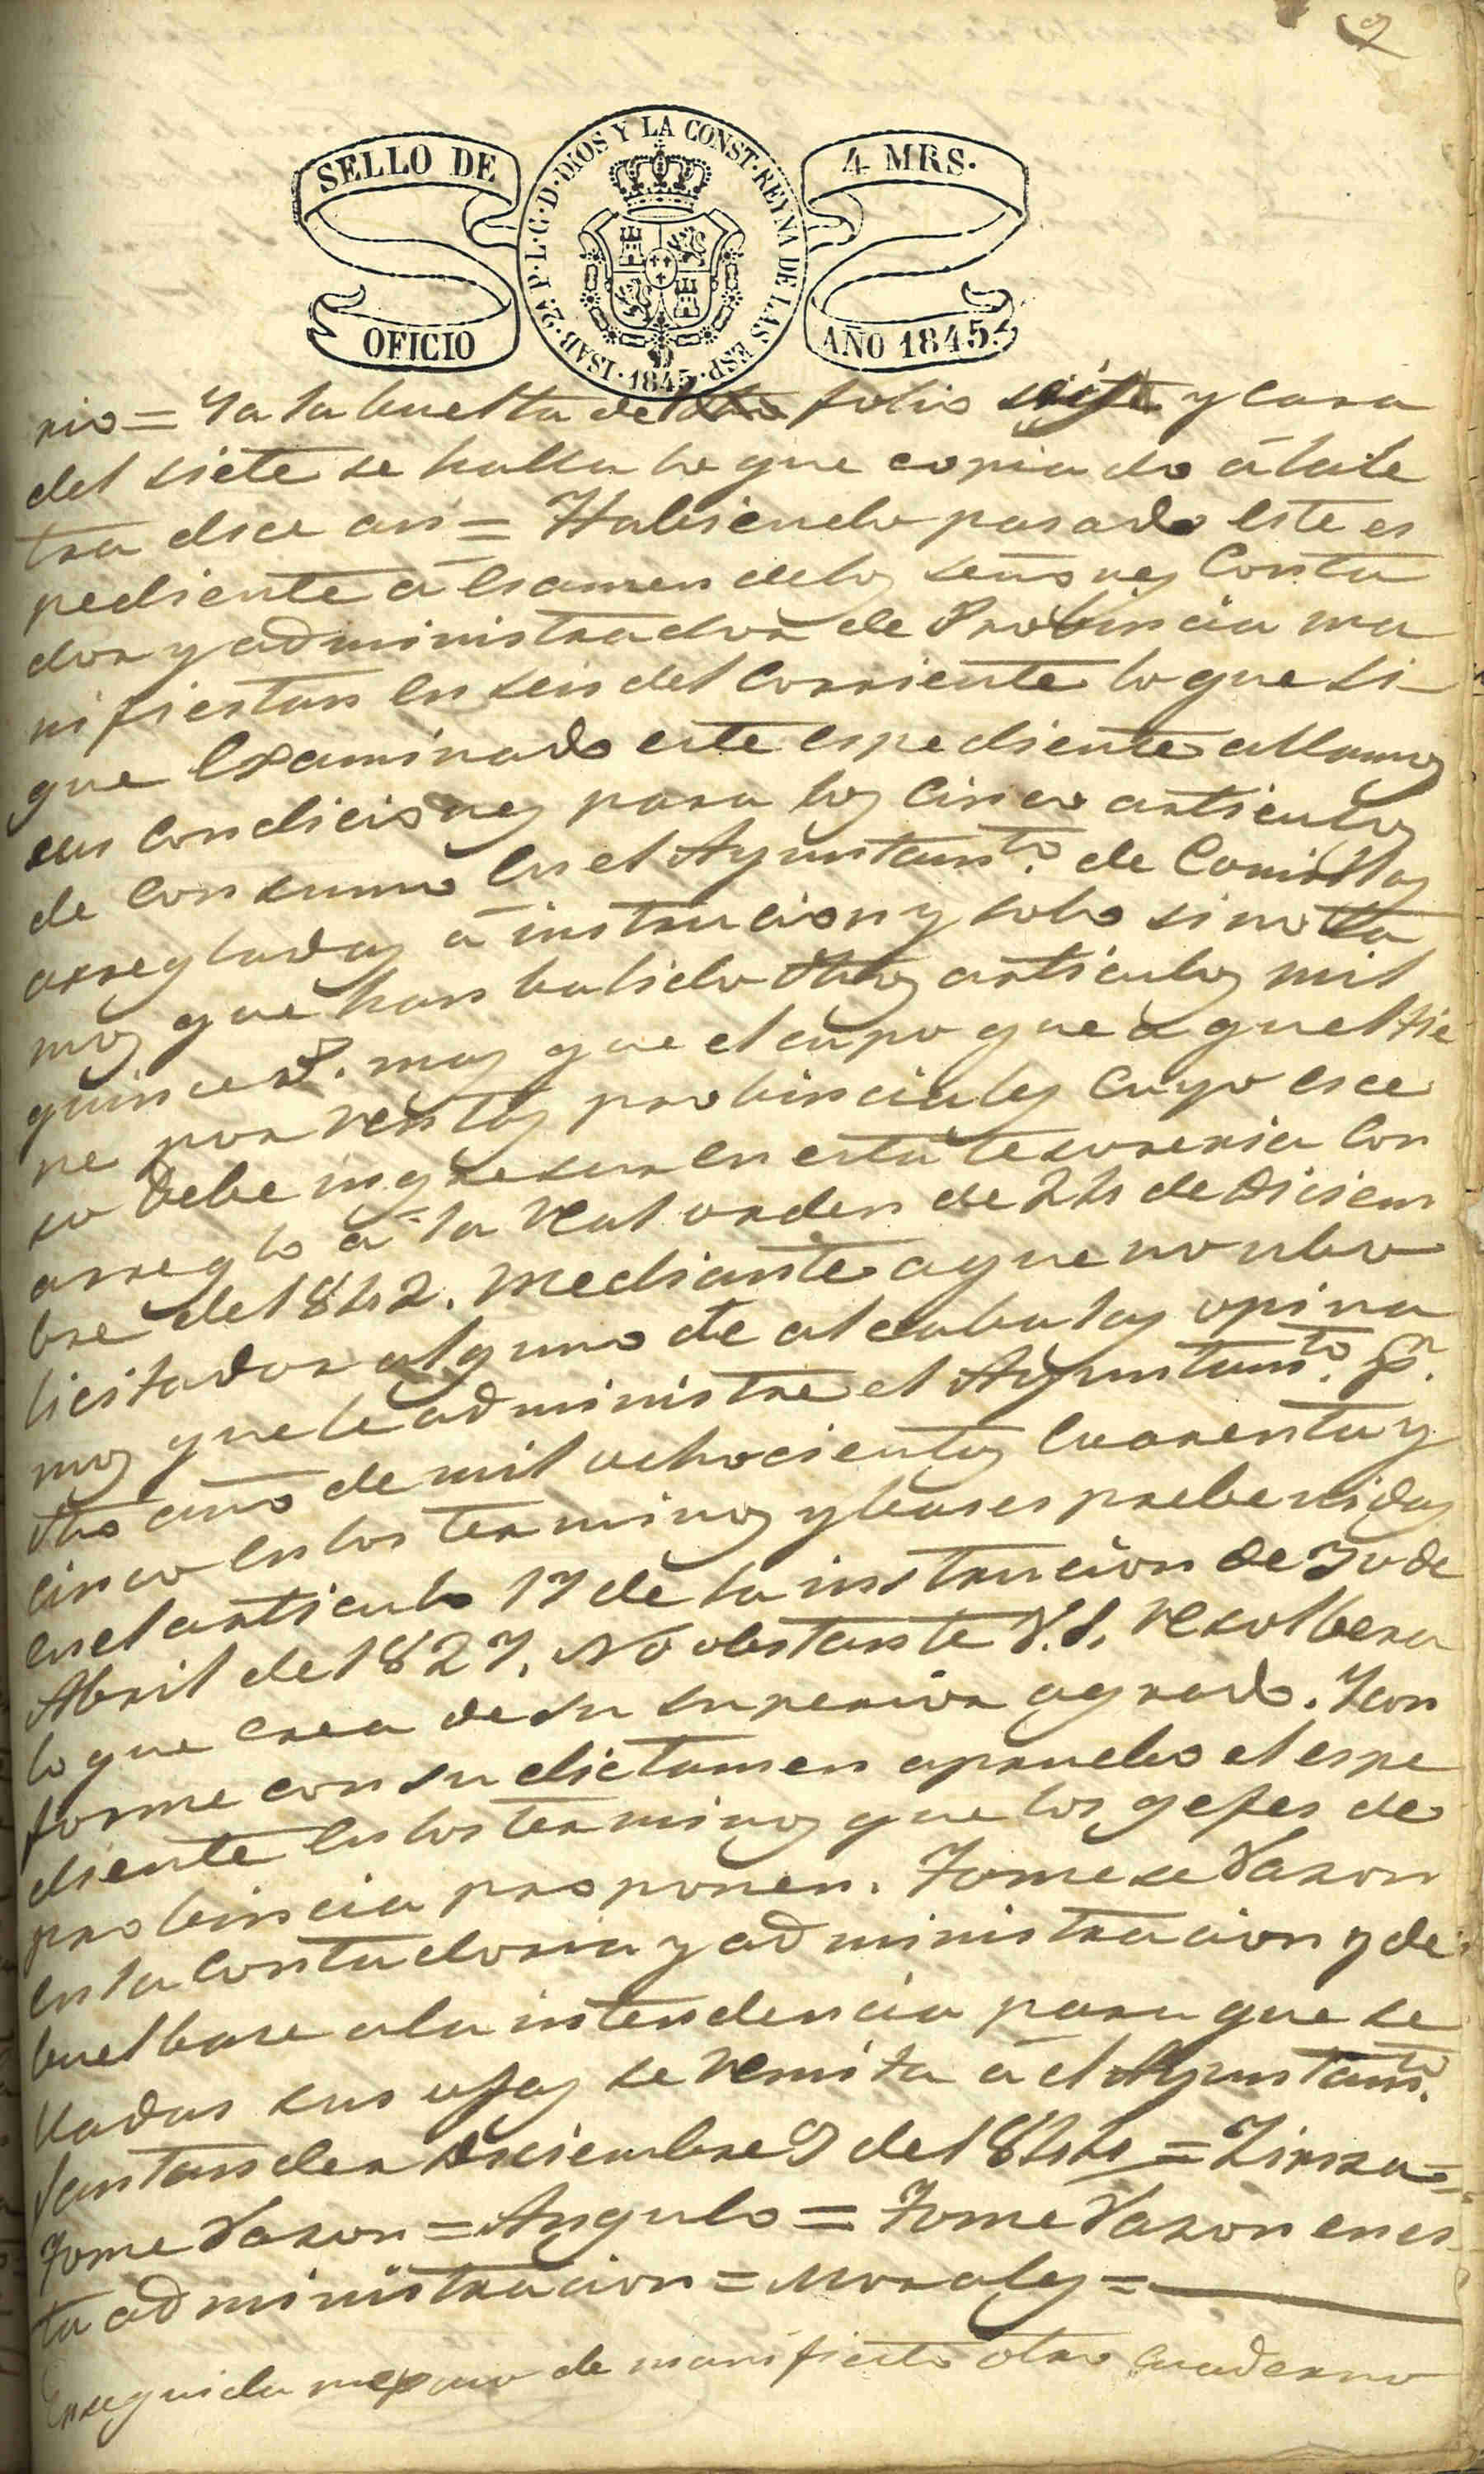 9
SELLO DE
OFICIO
ISAB. 2ª P. L. G. D. DIOS Y LA CONST. REYNA DE LAS ESP. 1845.
4 MRS.
AÑO 1845.
rio = Ya la buelta del folio y cara
del siete se halla lo que copiado á la le
tra dice asi = Habiendo pasado este es
pediente á esamen de los señores Conta
dor y administrador de Probincia ma
nifiestan en seis del corriente lo que si-
gue Examinado este espediente allamos
sus condiciones para los cinco articulos
de consumo en el Ayuntamto. de Comillas
arregladas á instrucion y solo si nota
mos que han balido dhos articulos mil
quince rs. mas que el cupo que aquel tie
ne por rentas probinciales cuyo esce
so debe ingresar en esta tesoreria con
arreglo á la Real orden de 24 de Diciem
bre del 842. Mediante a que no ubo
licitador alguno de alcabalas opina
mos que le administre el Ayuntamto. pr.
dho año de mil ochocientos cuarenta y
cinco en los terminos y bases prebenidas
en el articulo 17 de la instrucion de 30 de
Abril de 1827. No obstante V.S. resolbera
lo que crea de su superior agrado. Y con
forme con su dictamen apruebo el espe
diente en los terminos que los gefes de
probincia proponen. Tomese razon
en la contadoria y administracion y de
buelbase a la intendencia para que se
lladas sus ojas se remita á el Ayuntamto.
Santander Diciembre 9 de 1844 =
Tome razon = Angulo = Tome razon en es
ta administracion = Morales =
Enseguida me puso de manifiesto otro cuaderno